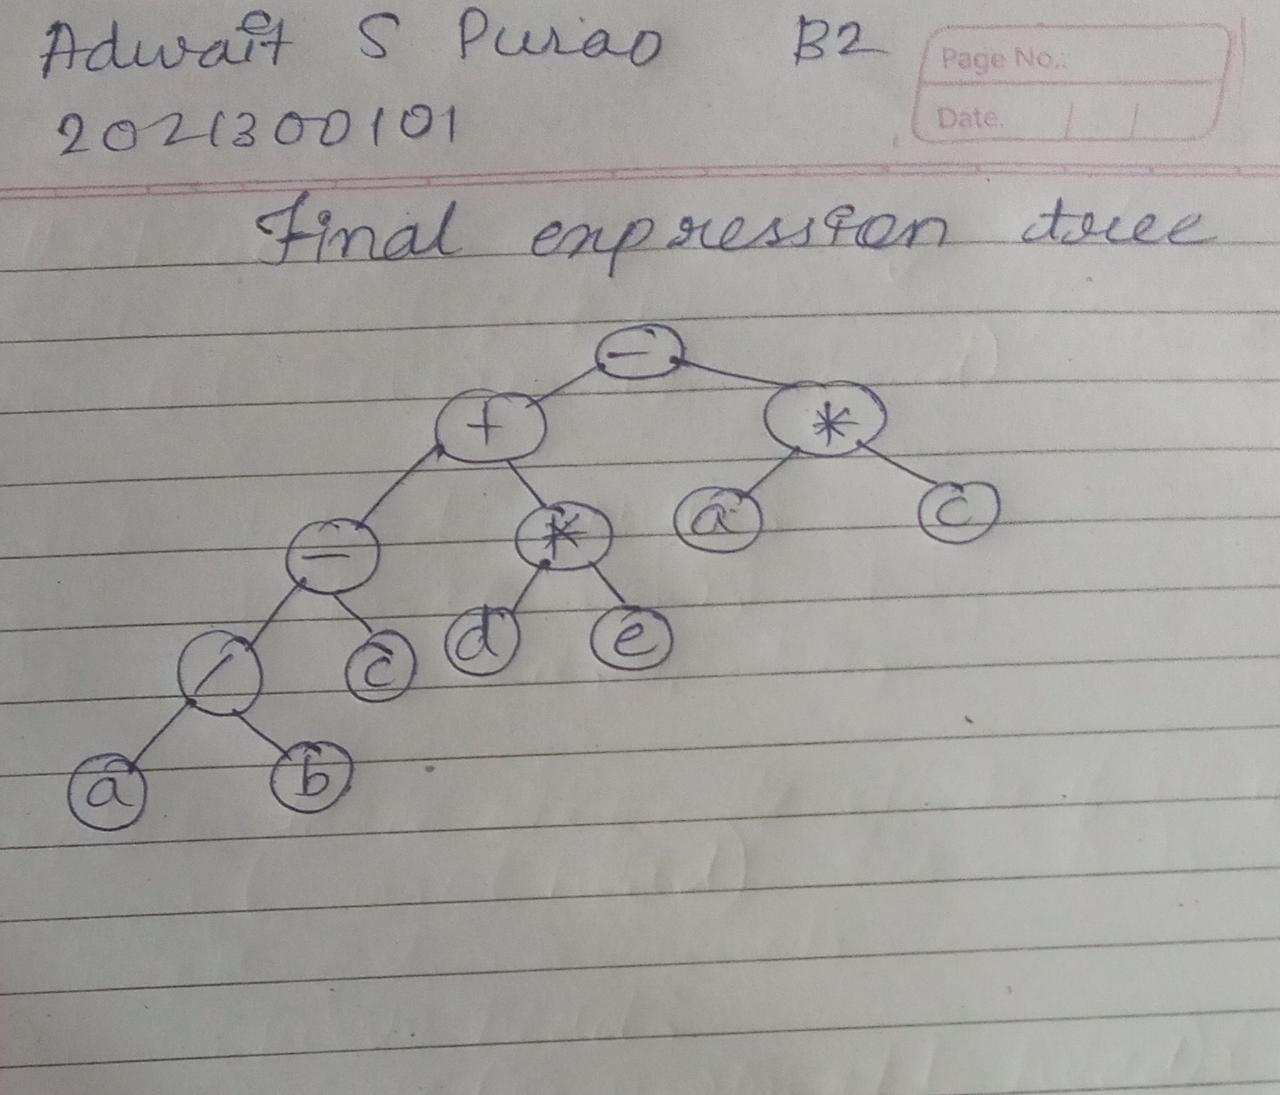 Adwait S Purao B2
Page No.:
2021300101
Date. / /
Final expression tree
−
+ *
− * a c
/ c d e
a b